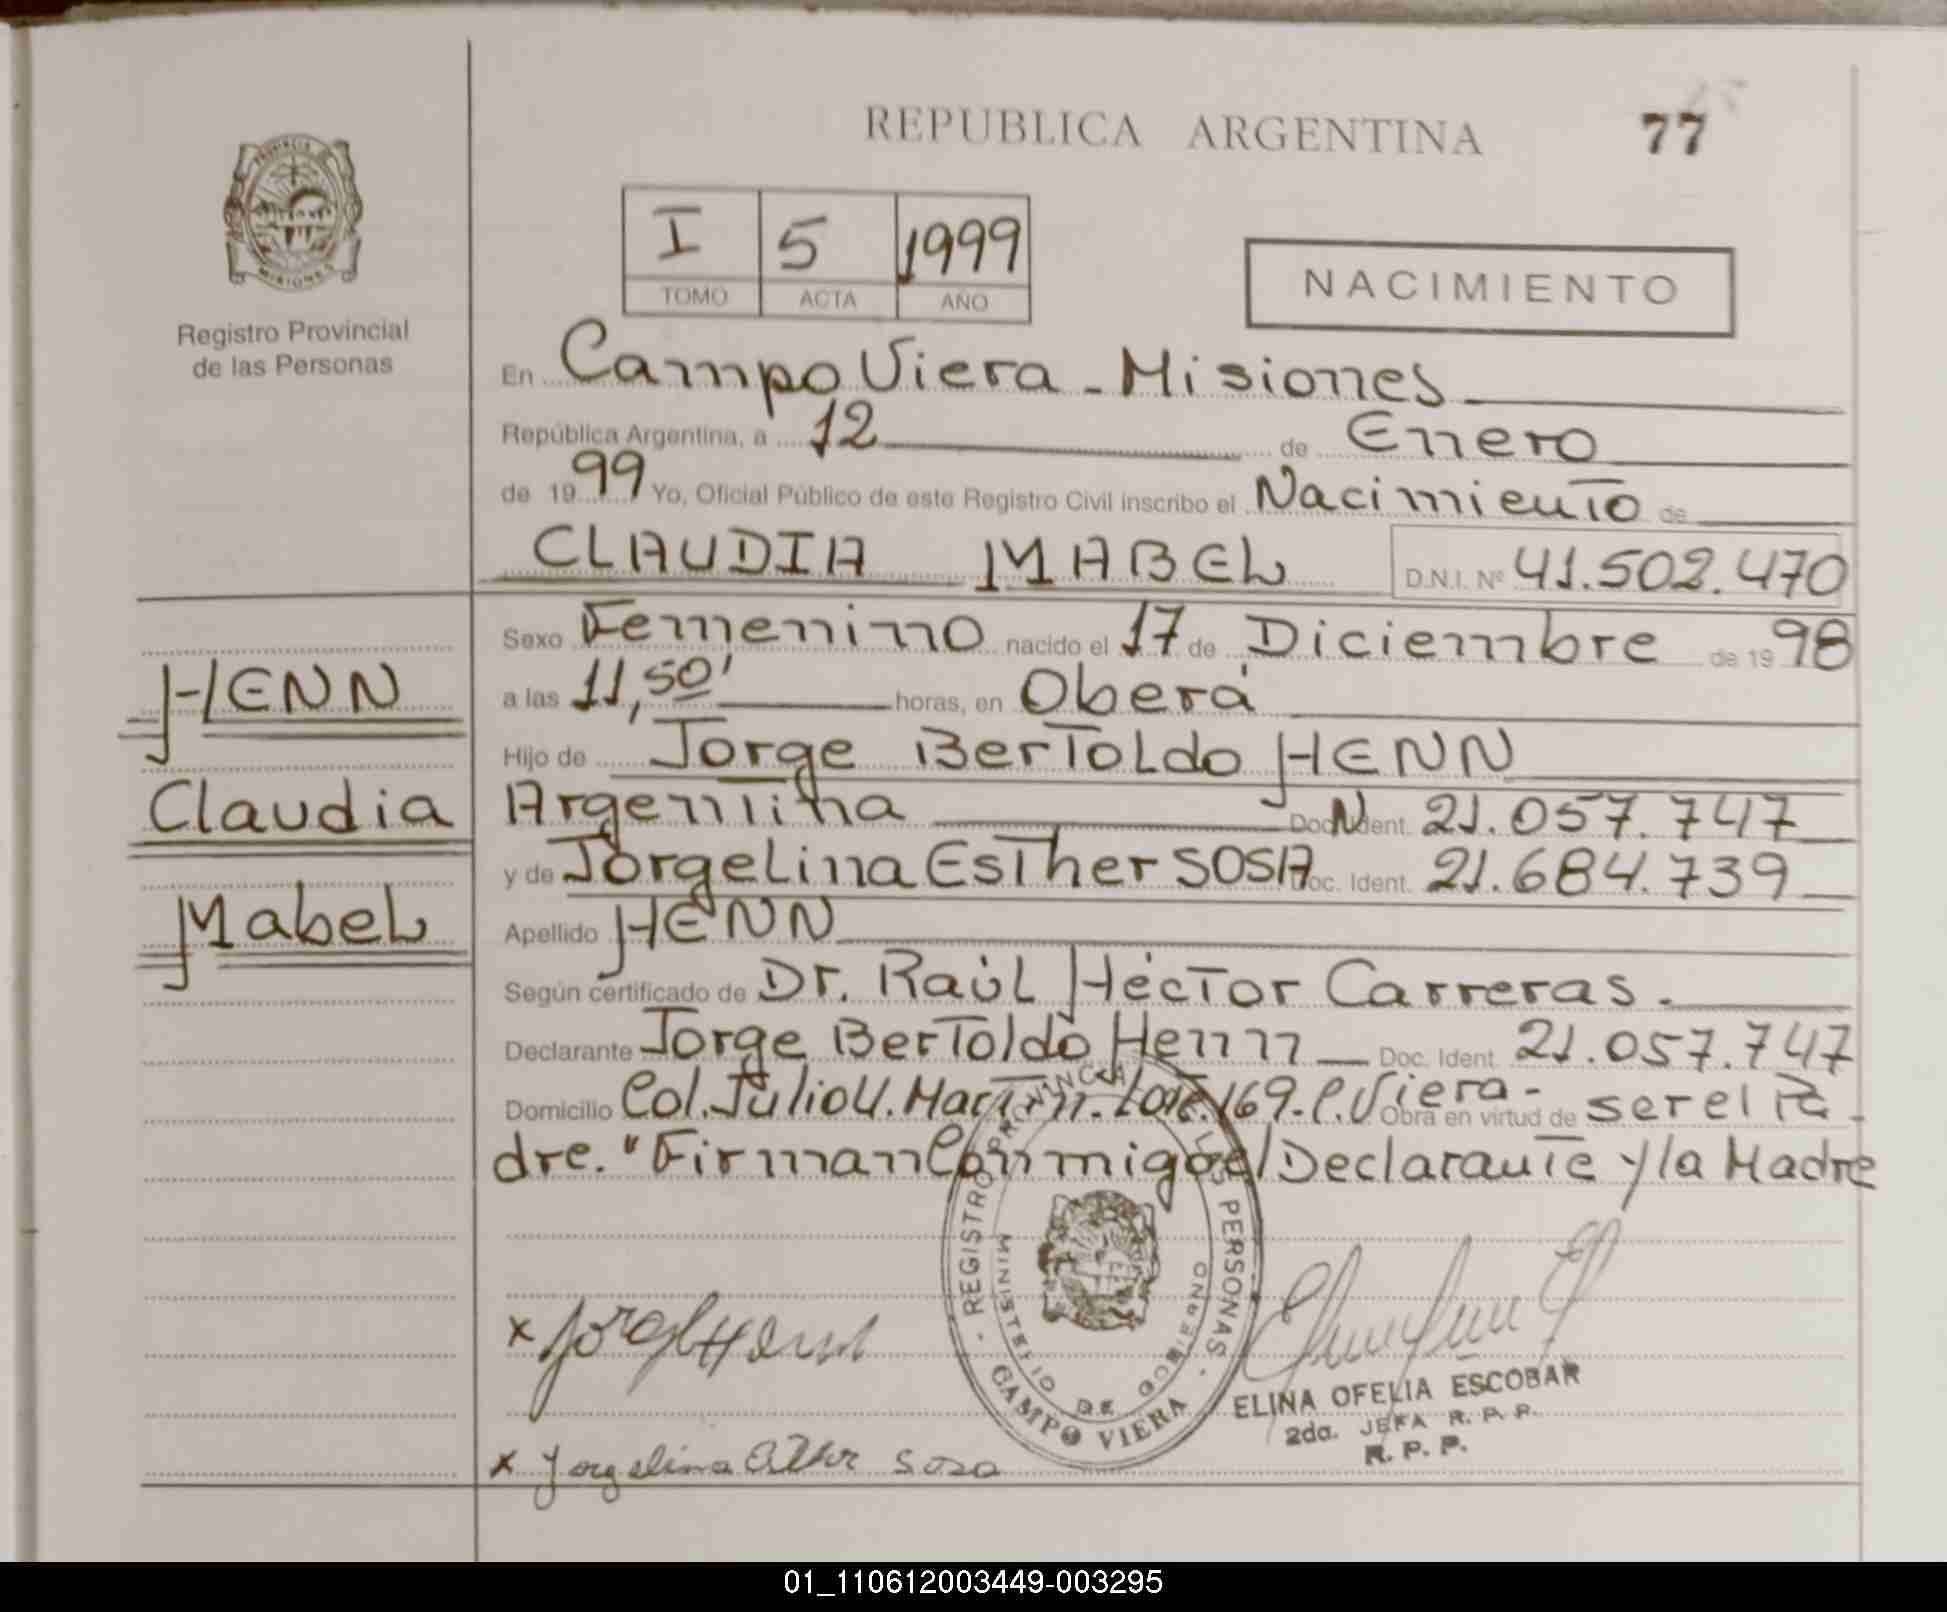 REPUBLICA ARGENTINA
77
PROVINCIA DE
MISIONES
Registro Provincial
de las Personas
I 5 1999
TOMO ACTA AÑO
NACIMIENTO
En Campo Viera - Misiones
República Argentina, a 12 de Enero
de 1999 Yo, Oficial Público de este Registro Civil inscribo el Nacimiento de
CLAUDIA MABEL D.N.I. Nº 41.502.470
HENN
Claudia
Mabel
Sexo Femenino nacido el 17 de Diciembre de 1998
a las 11,50' horas, en Oberá
Hijo de Jorge Bertoldo HENN
Argentina N Doc. Ident. 21.057.747
y de Jorgelina Esther SOSA Doc. Ident. 21.684.739
Apellido HENN
Según certificado de Dr. Raúl Héctor Carreras.
Declarante Jorge Bertoldo Henn Doc. Ident. 21.057.747
Domicilio Col. Julio U. Martin. Lote. 169. C. Viera - Obra en virtud de ser el Pa
dre. "Firman Conmigo el Declarante y la Madre
REGISTRO PROVINCIAL LAS PERSONAS
MINISTERIO DE GOBIERNO
CAMPO VIERA
x Jorge Henn
ELINA OFELIA ESCOBAR
2da. JEFA R. P. P.
R. P. P.
x Jorgelina Esther Sosa
01_110612003449-003295